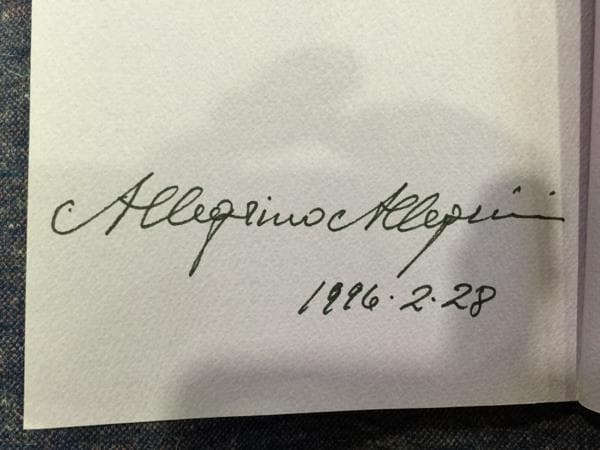 Allegrino Allegrini
1996.2.28